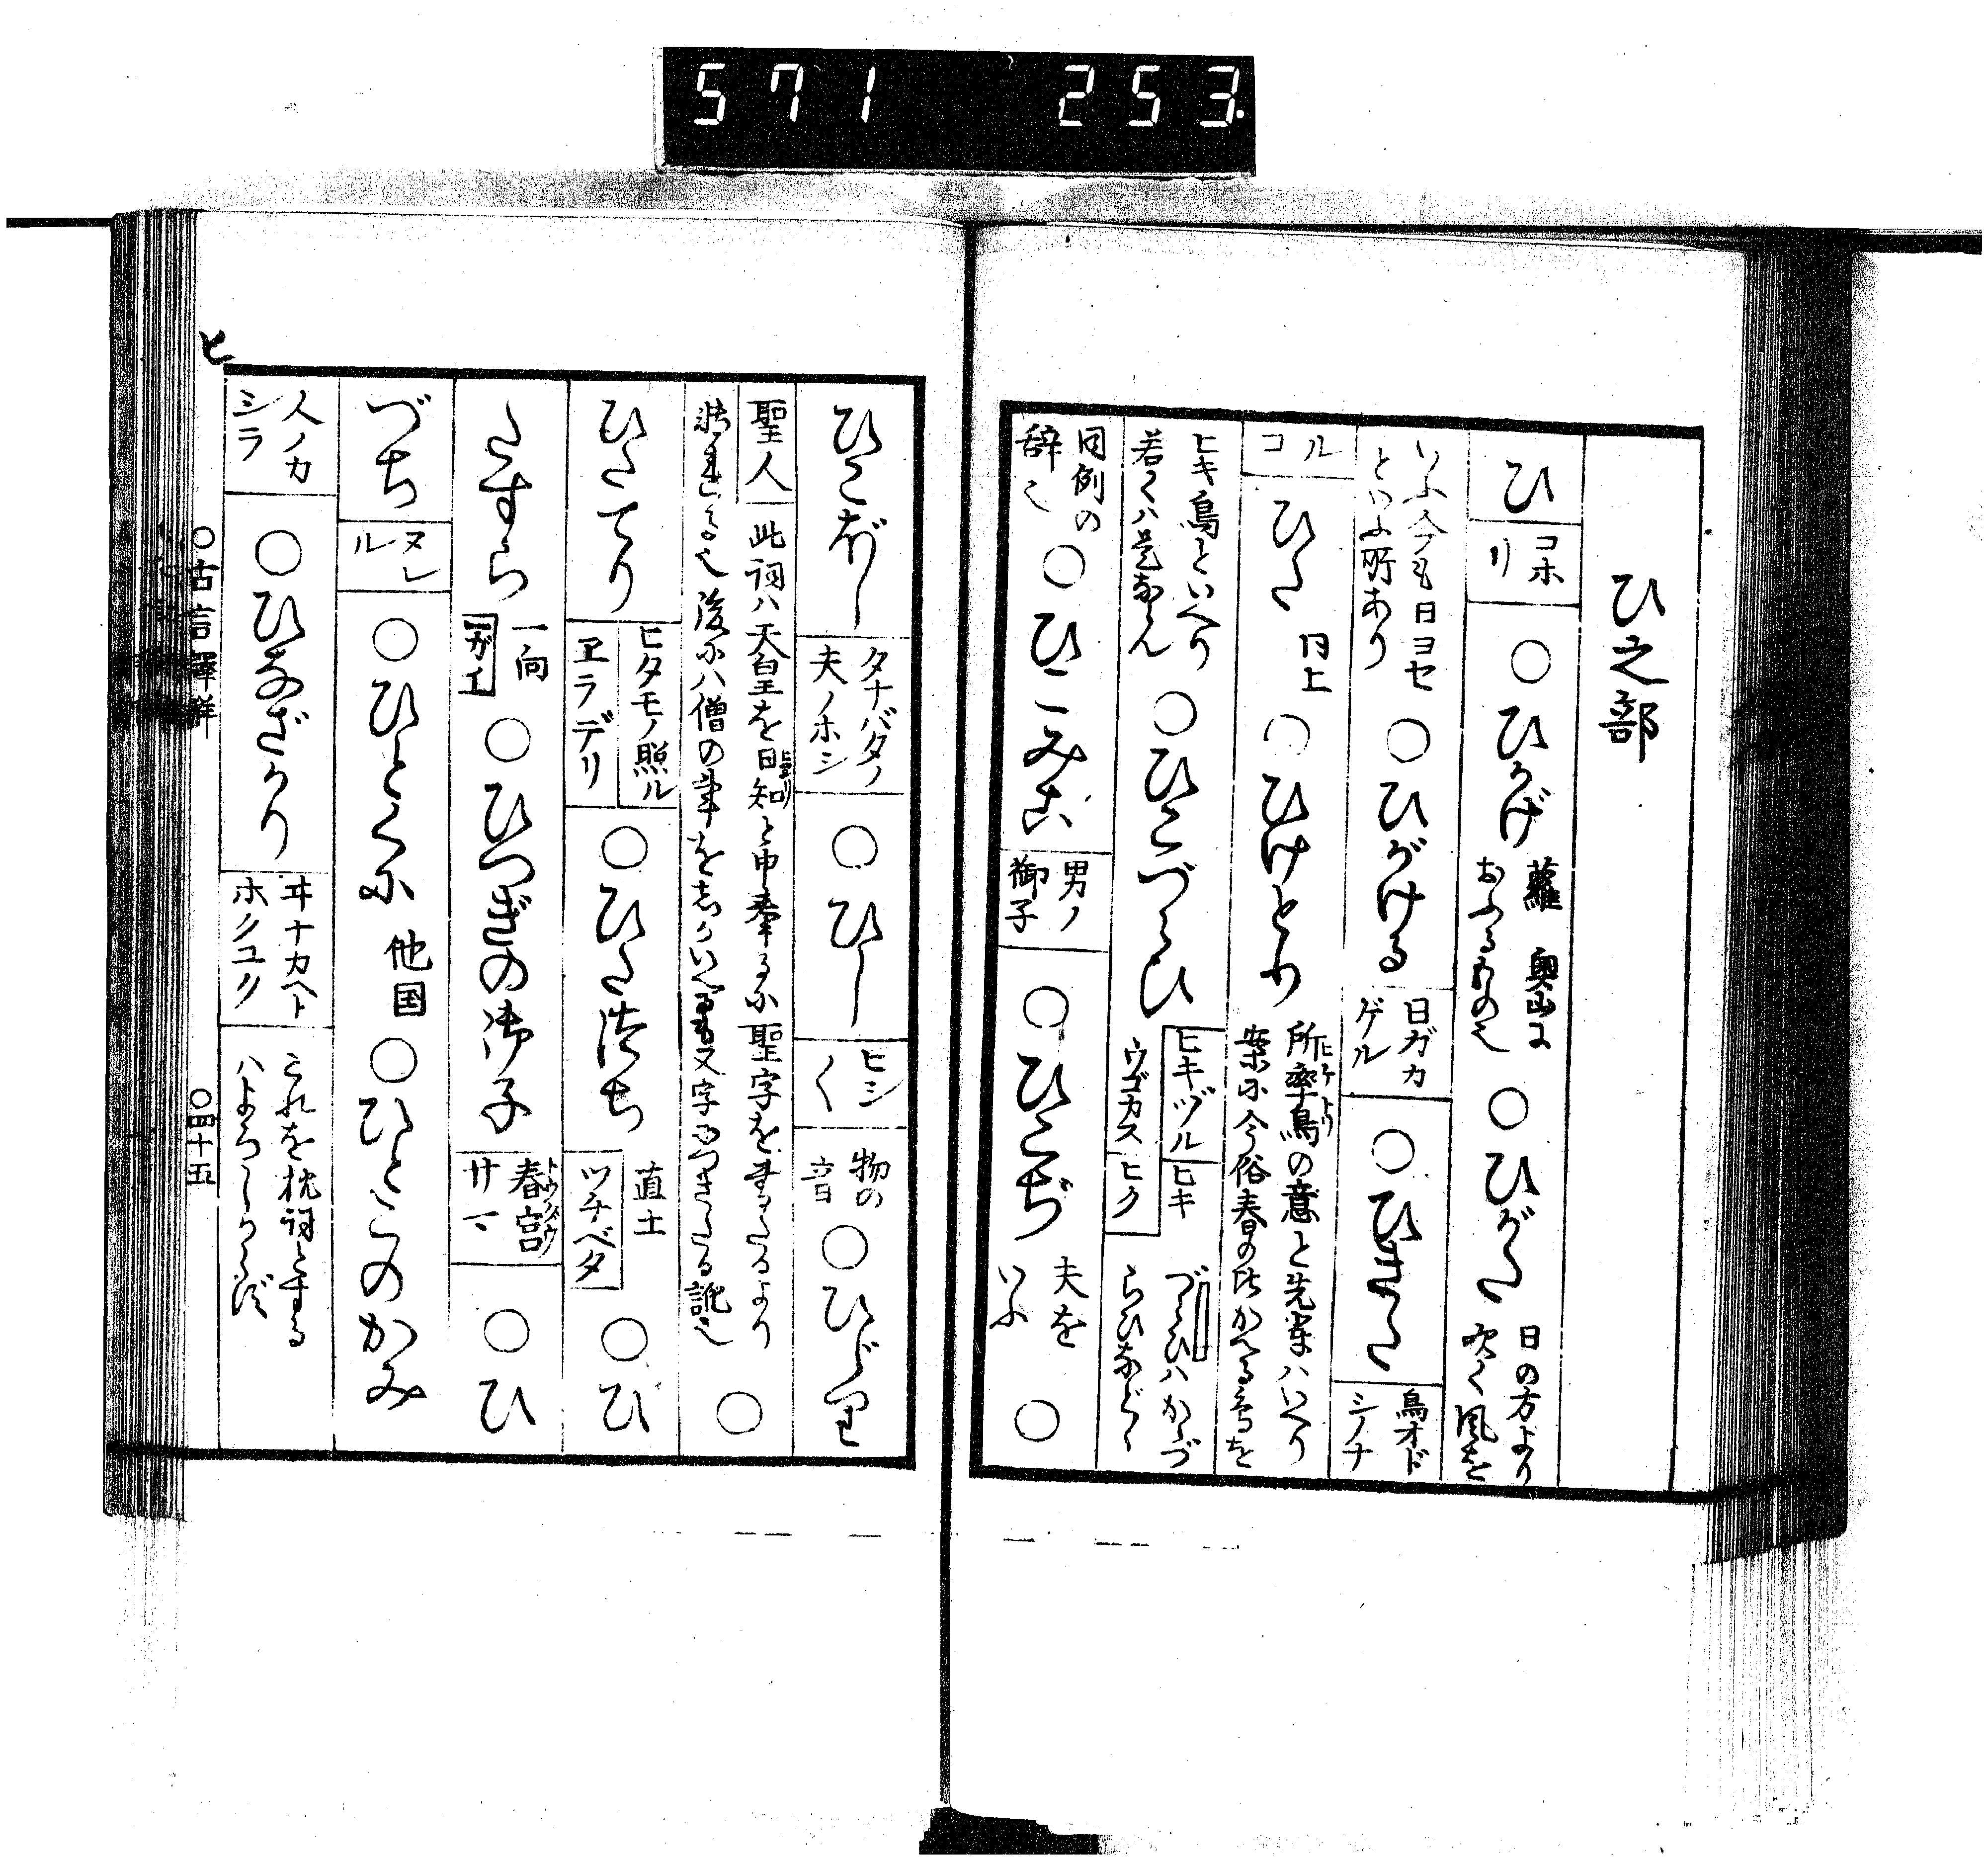 571 253.
ひ之部
ひ コホリ ○ひかげ 蘿 奥山におふるもの也 ○ひがた 日の方より吹く風を
いふ今も日ヨセといふ所あり ○ひがける 日ガカゲル ○ひきた 鳥オドシノナ
ルコ ひた 同上 ○ひけとり 所率鳥の意と先輩ハいへり案に今俗春の比かへる鳥を
ヒキ鳥といへり若くハ是ならん ○ひこづらひ ヒキヅルヒキウゴカスヒク づらひハかゝづらひなどゝ
同例の辞也 ○ひこみこ 男ノ御子 ○ひこぢ 夫をいふ ○
ひこぼし タナバタノ夫ノホシ ○ひし ヒシ〱 物の音 ○ひじり
聖人 此詞ハ天皇を日知と申奉るに聖字を書たるより
転れる也後にハ僧の事をしかいへるも文字につきたる訛也 ○
ひたてり ヒタモノ照ル ヱラデリ ○ひたつち 直土 ツチベタ ○ひ
たすら 一向 ○ひつぎの御子 春宮サマ ○ひ
づち ヌレル ○ひとくに 他国 ○ひとこのかみ
人ノカシラ ○ひなざかり ヰナカヘトホクユク これを枕詞とするハよろしからず
ヒ
○古言譯解 ○四十五